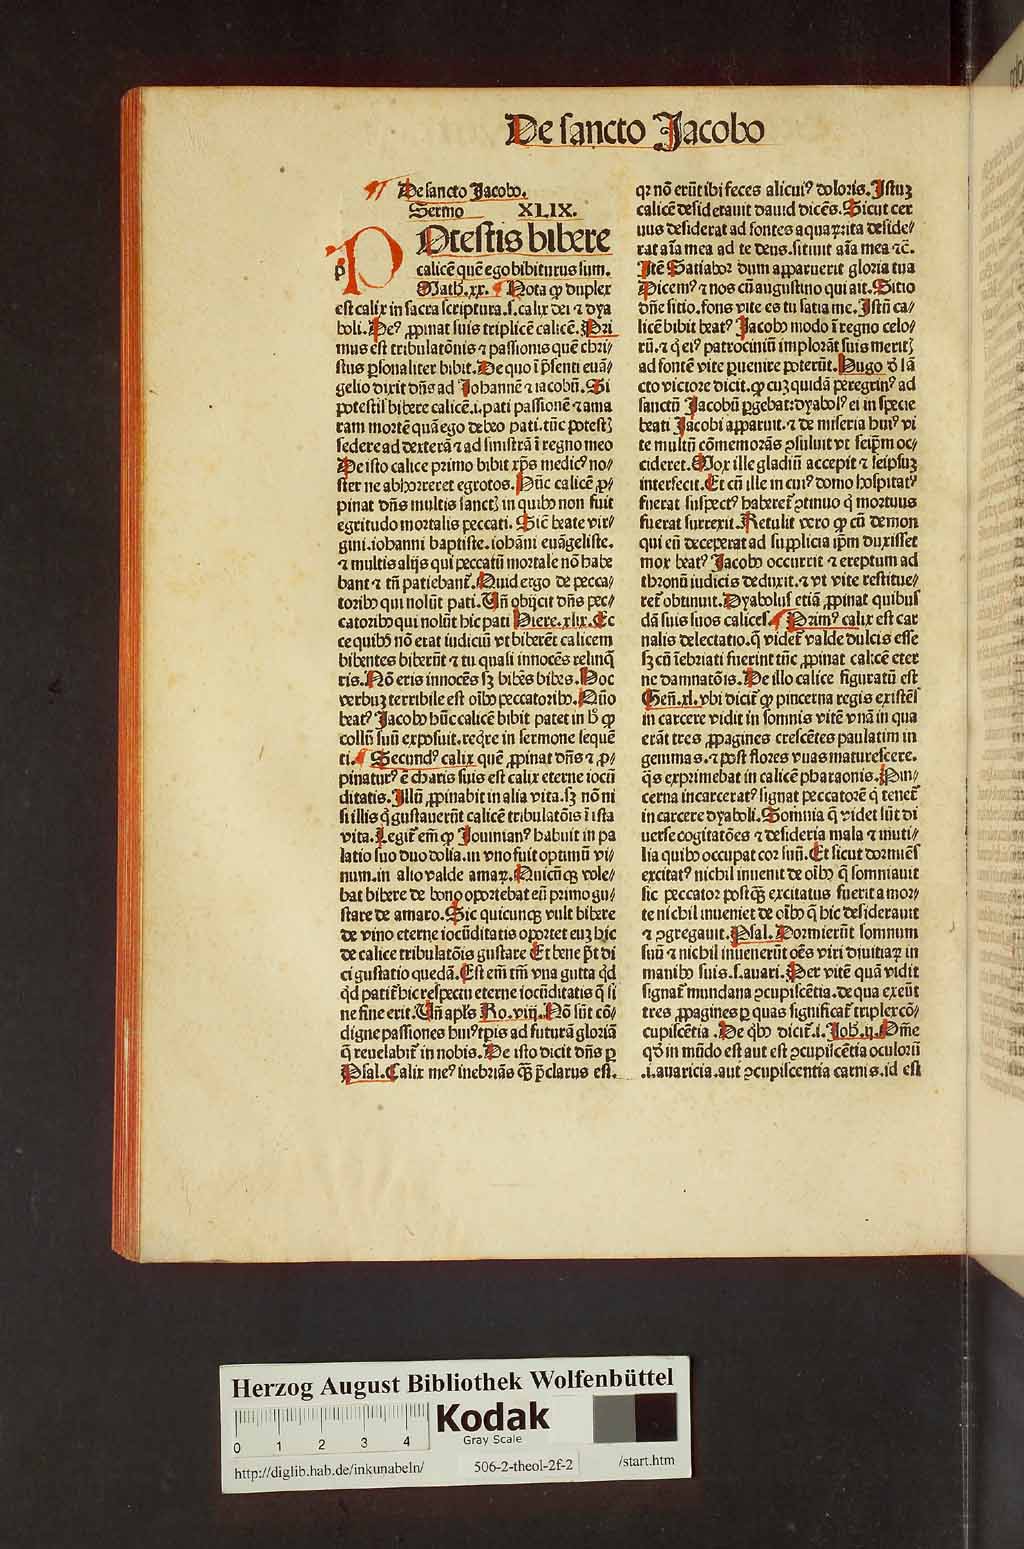 De sancto Jacobo
De sancto Jacobo.
Sermo XLIX.
Potestis bibere
calicē quē ego bibiturus sum.
Math. xx. Nota ꝙ duplex
est calix in sacra scriptura. s. calix dei ⁊ dya
boli. Deꝰ ꝓpinat suis triplicē calicē. Pri
mus est tribulatōnis ⁊ passionis quē chri/
stus ꝑsonaliter bibit. De quo ī p̄senti euā/
gelio dixit dn̄s ad Johannē ⁊ iacobū. Si
potestis bibere calicē .i. pati passionē ⁊ ama
ram mortē quā ego debeo pati. tūc potestꝭ
sedere ad dexterā ⁊ ad sinistrā ī regno meo
De isto calice primo bibit xp̄s medicꝰ no/
ster ne abhorreret egrotos. Hūc calicē ꝓ/
pinat dn̄s multis sanctꝭ in quibꝰ non fuit
egritudo mortalis peccati. Sicē beate vir/
gini. iohanni baptiste. iohāni euāgeliste.
⁊ multis alijs qui peccatū mortale nō habe
bant ⁊ tn̄ patiebant̄. Quid ergo de pecca/
toribꝰ qui nolūt pati. Un̄ obijcit dn̄s pec/
catoribꝰ qui nolūt hic pati Hiere. xlix. Ec
ce quibꝰ nō erat iudiciū vt biberēt calicem
bibentes biberūt ⁊ tu quasi innocēs relinq̄
ris. Nō eris innocēs sꝫ bibēs bibes. Hoc
verbuꝫ terribile est oībꝰ peccatoribꝰ. Qūo
beatꝰ Jacobꝰ hūc calicē bibit patet in hͦ ꝙ
collū suū exposuit. req̄re in sermone seque̅
ti. Secundꝰ calix quē ꝓpinat dn̄s ⁊ ꝓ/
pinaturꝰ ē charis suis est calix eterne iocū
ditatis. Illū ꝓpinabit in alia vita. sꝫ nō ni
si illis q̇ gustauerūt calicē tribulatōis ī ista
vita. Legit̄ em̄ ꝙ Jouinianꝰ habuit in pa
latio suo duo dolia. in vno fuit optimū vi/
num. in alio valde amaꝝ. Quicūcꝫ vole/
bat bibere de bono oportebat eū primo gu/
stare de amaro. Sic quicunqꝫ vult bibere
de vino eterne iocūditatis oportet euꝫ hic
de calice tribulatōis gustare Et bene p̄t di
ci gustatio quedā. Est em̄ tm̄ vna gutta q̇d
q̇d patit̄ hic respectu eterne iocūditatis q̄ si
ne fine erit. Un̄ apl's Ro. viij. Nō sūt cō/
digne passiones huiꝰ tp̄is ad futurā gloriā
q̄ reuelabit̄ in nobis. De isto dicit dn̄s ꝑ
Psal. Calix meꝰ inebriās qꝫ̄ p̄clarus est.
qꝛ nō erūt ibi feces alicuiꝰ doloris. Istuꝫ
calicē desiderauit dauid dicēs. Sicut cer
uus desiderat ad fontes aquaꝝ ita deside/
rat aīa mea ad te deus. sitiuit aīa mea ⁊c̄.
Itē Satiabor dum apparuerit gloria tua
Dicemꝰ ⁊ nos cū augustino qui ait. Sitio
dn̄e sitio. fons vite es tu satia me. Istū ca/
licē bibit beatꝰ Jacobꝰ modo ī regno celo/
rū. ⁊ q̇ eiꝰ patrociniū implorāt suis meritꝭ
ad fontē vite ꝑuenire poterūt. Hugo d' sā
cto victore dicit. ꝙ cuꝫ quidā peregrinꝰ ad
sanctū Jacobū ꝑgebat: dyabolꝰ ei in specie
beati Jacobi apparuit. ⁊ de miseria huiꝰ vi
te multū cōmemorās ꝯsuluit vt seip̄m oc/
cideret. Mox ille gladiū accepit ⁊ seipsuꝫ
interfecit. Et cū ille in cuiꝰ domo hospitatꝰ
fuerat suspectꝰ haberet̄ ꝯtinuo q̇ mortuus
fuerat surrexit. Retulit vero ꝙ cū demon
qui eū deceperat ad supplicia ip̄m duxisset
mox beatꝰ Jacobꝰ occurrit ⁊ ereptum ad
thronū iudicis deduxit. ⁊ vt vite restitue/
ret̄ obtinuit. Dyabolus etiā ꝓpinat quibus
dā suis suos calices. Primꝰ calix est car
nalis delectatio. q̄ videt̄ valde dulcis esse
sꝫ cū īebriati fuerint tūc ꝓpinat calicē eter
ne damnatōis. De illo calice figuratū est
Gen̄. xl. vbi dicit̄ ꝙ pincerna regis existēs
in carcere vidit in somnis vitē vnā in qua
erāt tres ꝓpagines crescētes paulatim in
gemmas. ⁊ post flores vuas maturescere.
q̄s exprimebat in calicē pharaonis. Pin/
cerna incarceratꝰ signat peccatorē q̇ tenet̄
in carcere dyaboli. Somnia q̄ videt sūt di
uerse cogitatōes ⁊ desideria mala ⁊ inuti/
lia quibꝰ occupat cor suū. Et sicut dormiēs
excitatꝰ nichil inuenit de oībꝰ q̄ somniauit
sic peccator postqꝫ̄ excitatus fuerit a mor/
te nichil inueniet de oībꝰ q̄ hic desiderauit
⁊ ꝯgregauit. Psal. Dormierūt somnum
suū ⁊ nichil inuenerūt oēs viri diuitiaꝝ in
manibꝰ suis. s. auari. Per vitē quā vidit
signat̄ mundana ꝯcupiscētia. de qua exeūt
tres ꝓpagines ꝑ quas significat̄ triplex cō/
cupiscētia. De q̇bꝰ dicit̄ .i. Joh. ij. Om̄e
qd' in mūdo est aut est ꝯcupiscētia oculorū
.i. auaricia. aut ꝯcupiscentia carnis. id est
Herzog August Bibliothek Wolfenbüttel
0 1 2 3 4
Kodak
Gray Scale
http://diglib.hab.de/inkunabeln/ 506-2-theol-2f-2 /start.htm